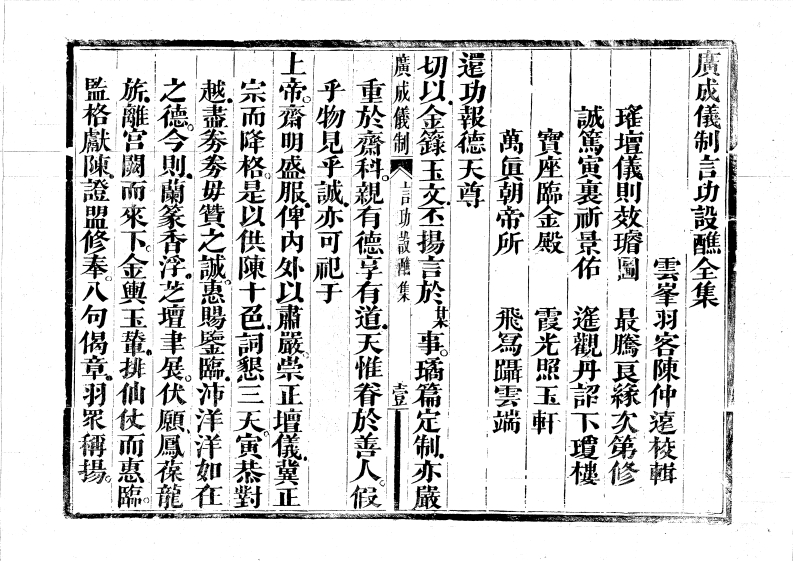 廣成儀制言功設醮全集
雲峯羽客陳仲遠校輯
璀壇儀則效璿圖 最騰良緣次第修
誠篤寅裏祈景佑 遙觀丹詔下瓊樓
寶座臨金殿 霞光照玉軒
萬眞朝帝所 飛舄躡雲端
還功報德天尊
切以金籙玉文丕揚言於某事璚篇定制亦嚴
廣成儀制 言功設醮集 壹
重於齋科親有德享有道天惟眷於善人假
乎物見乎誠亦可祀于
上帝齋明盛服俾內外以肅嚴崇正壇儀冀正
宗而降格是以供陳十色詞懇三天寅恭對
越盡劵劵毋贊之誠惠賜鑒臨沛洋洋如在
之德今則蘭篆香浮芝壇聿展伏願鳳葆龍
旂離宮闕而來下金輿玉輦排仙仗而惠臨
監格獻陳證盟修奉八句偈章羽眾稱揚